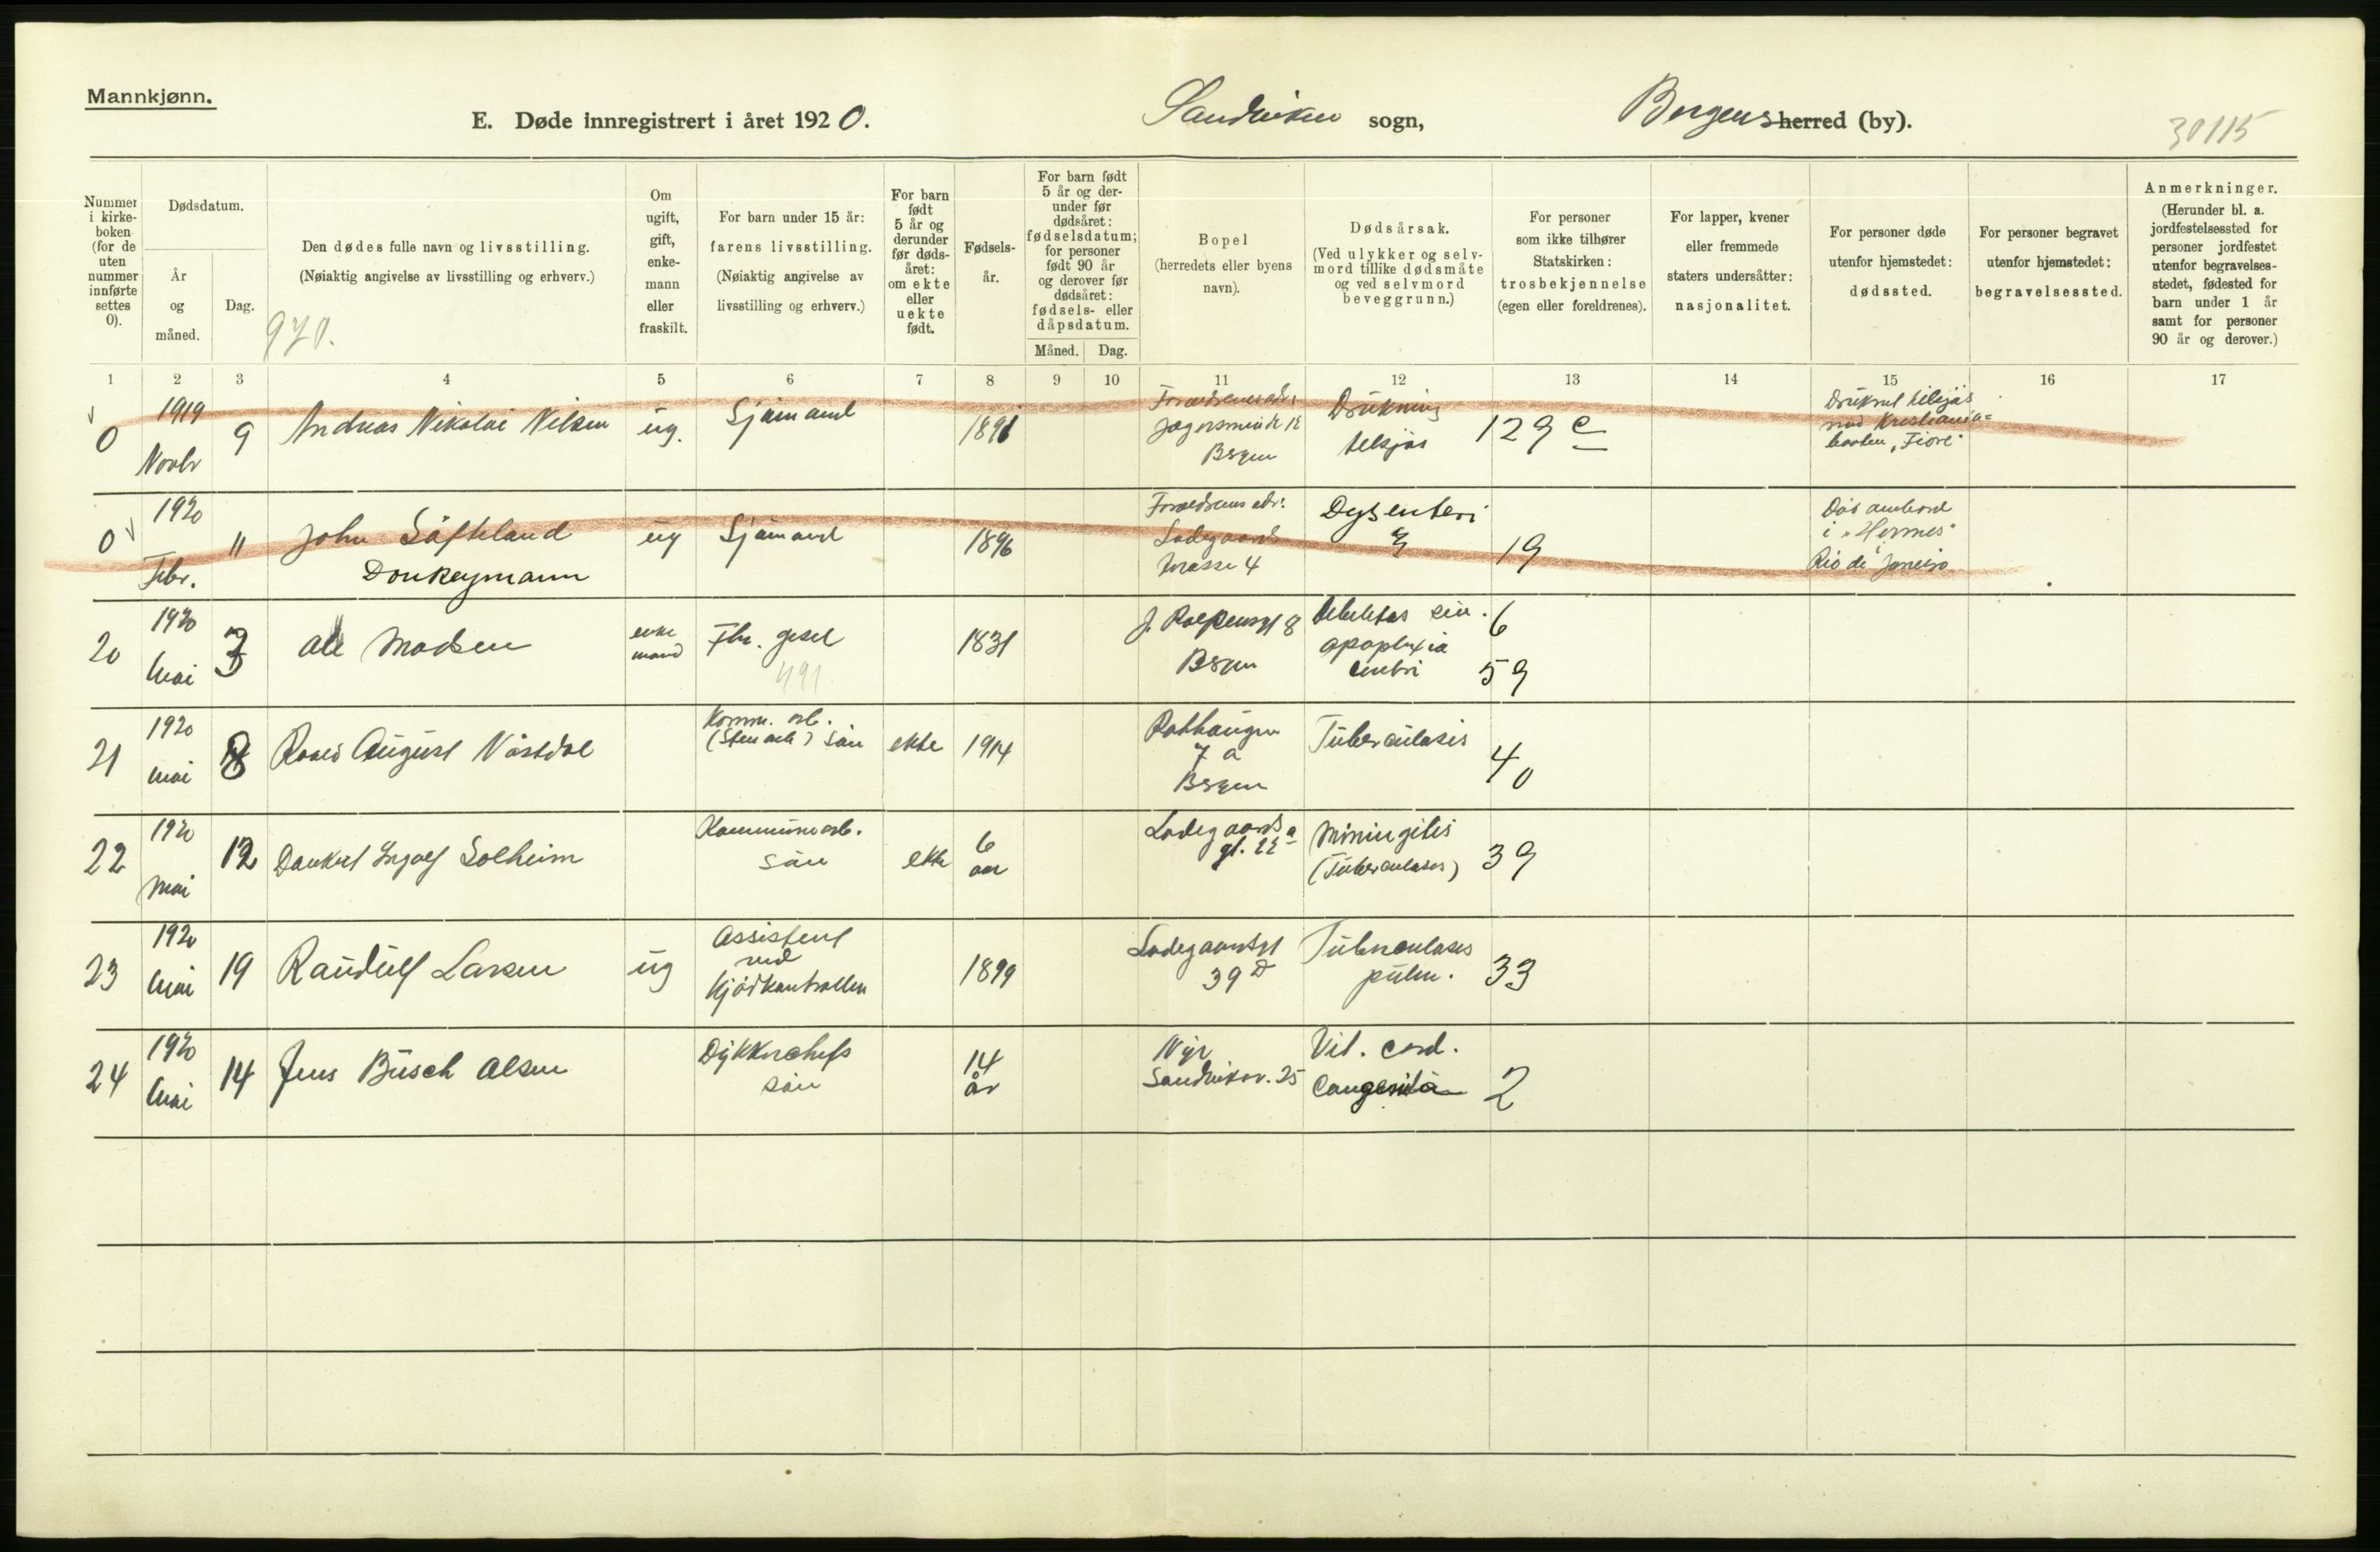 Mannkjønn.
E. Døde innregistrert i året 1920.
Sandviken sogn,
Bergens herred (by).
30115
Nummer i kirkeboken (for de uten nummer innførte settes 0).
Dødsdatum.
År og måned.
Dag.
Den dødes fulle navn og livsstilling.
(Nøiaktig angivelse av livsstilling og erhverv.)
970.
Om ugift, gift, enkemann eller fraskilt.
For barn under 15 år: farens livsstilling.
(Nøiaktig angivelse av livsstilling og erhverv.)
For barn født 5 år og derunder før dødsåret: om ekte eller uekte født.
Fødselsår.
For barn født 5 år og derunder før dødsåret: fødselsdatum; for personer født 90 år og derover før dødsåret: fødsels- eller dåpsdatum.
Måned.
Dag.
Bopel
(herredets eller byens navn).
Dødsårsak.
(Ved ulykker og selvmord tillike dødsmåte og ved selvmord beveggrunn.)
For personer som ikke tilhører Statskirken: trosbekjennelse
(egen eller foreldrenes).
For lapper, kvener eller fremmede staters undersåtter: nasjonalitet.
For personer døde utenfor hjemstedet: dødssted.
For personer begravet utenfor hjemstedet: begravelsessted.
Anmerkninger.
(Herunder bl. a. jordfestelsessted for personer jordfestet utenfor begravelsesstedet, fødested for barn under 1 år samt for personer 90 år og derover.)
1 2 3 4 5 6 7 8 9 10 11 12 13 14 15 16 17
0
1919
Novbr
9
Andreas Nikolai Nilsen
ug.
Sjømand
1891
Bergen
Drukning
tilsjøs
129 c
Druknet tilsjøs
med Kristiania=
baaten „Fiore"
0
1920
Febr.
11
John Söfteland
Donkeymann
ug
Sjømand
1896
Forældrenes adr:
Ladegaards
terasse 4
Dysenteri
19
Död ombord
i „Hermes"
i
Rio de Janeiro
20
1920
Mai
3
Ole Madsen
enke
mand
491
1831
Bergen
Debilitas sen.
apoplexia
cerebri
6
59
21
1920
Mai
8
August Nöstdal
Komm. arb.
(Stenarb) sön
ekte
1914
Rothaugen
7 a
Bergen
Tuberculosis
40
22
1920
Mai
12
Dankert Ingolf Solheim
Kommunearb.
sön
ekte
6
aar
Ladegaards
gt. 22 a
Miningitis
(Tuberculosis)
39
23
1920
Mai
19
Randulf Larsen
ug
Assistent
ved
Kjödkontrollen
1899
Ladegaardsgt
39 D
Tuberculosis
pulm.
33
24
1920
Mai
14
Jens Büsch Olsen
Dykkerchefs
sön
14
år
Nye
Sandviksv. 25
Vit. cord.
Congenita
2